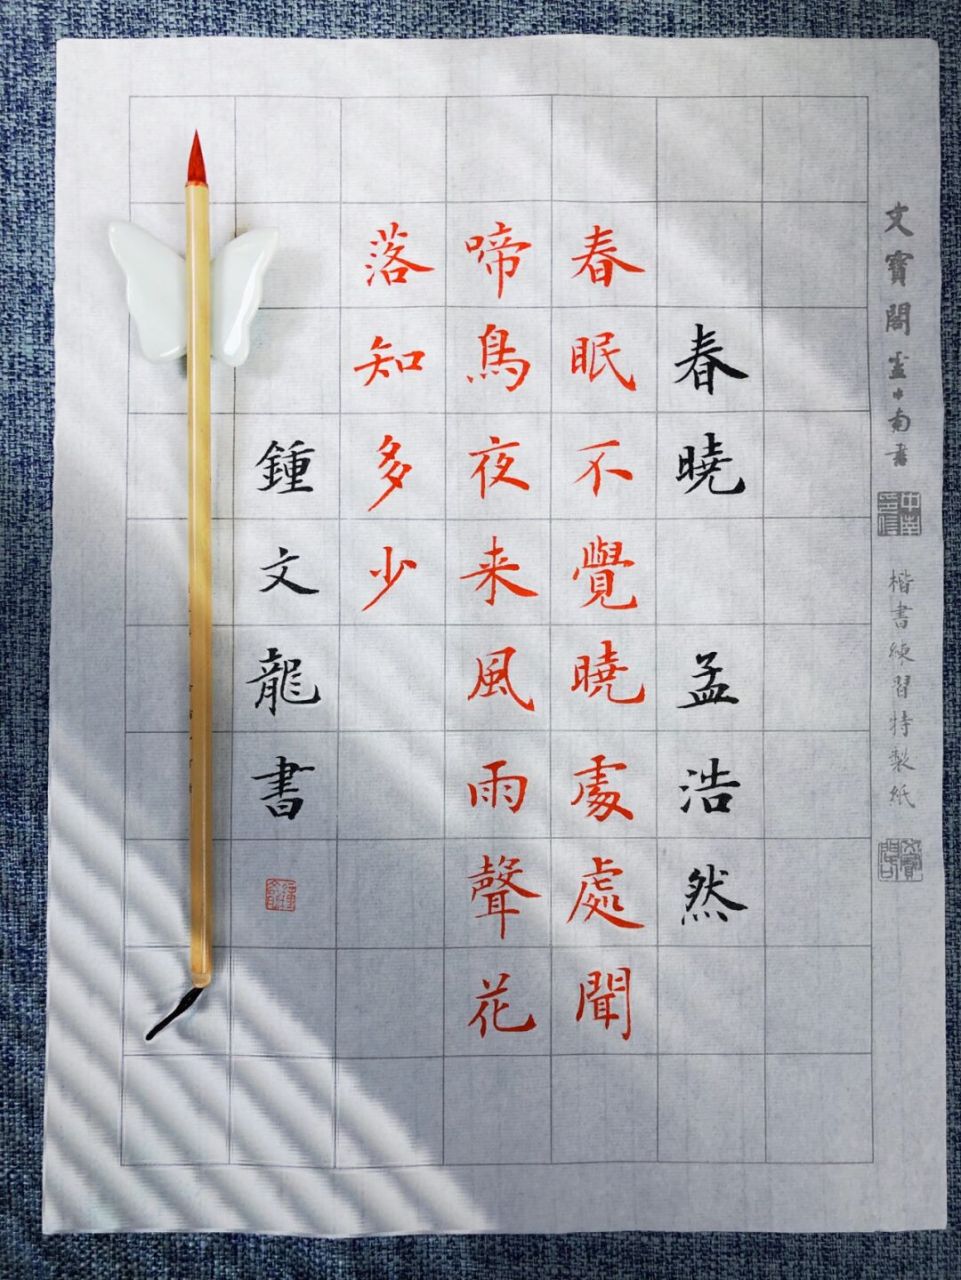 文寶閣
楷書練習特製紙
春曉 孟浩然
春眠不覺曉處處聞
啼鳥夜来風雨聲花
落知多少
鍾文龍書